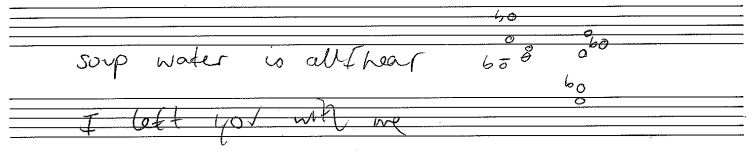 soup water is all I hear
I left you with me